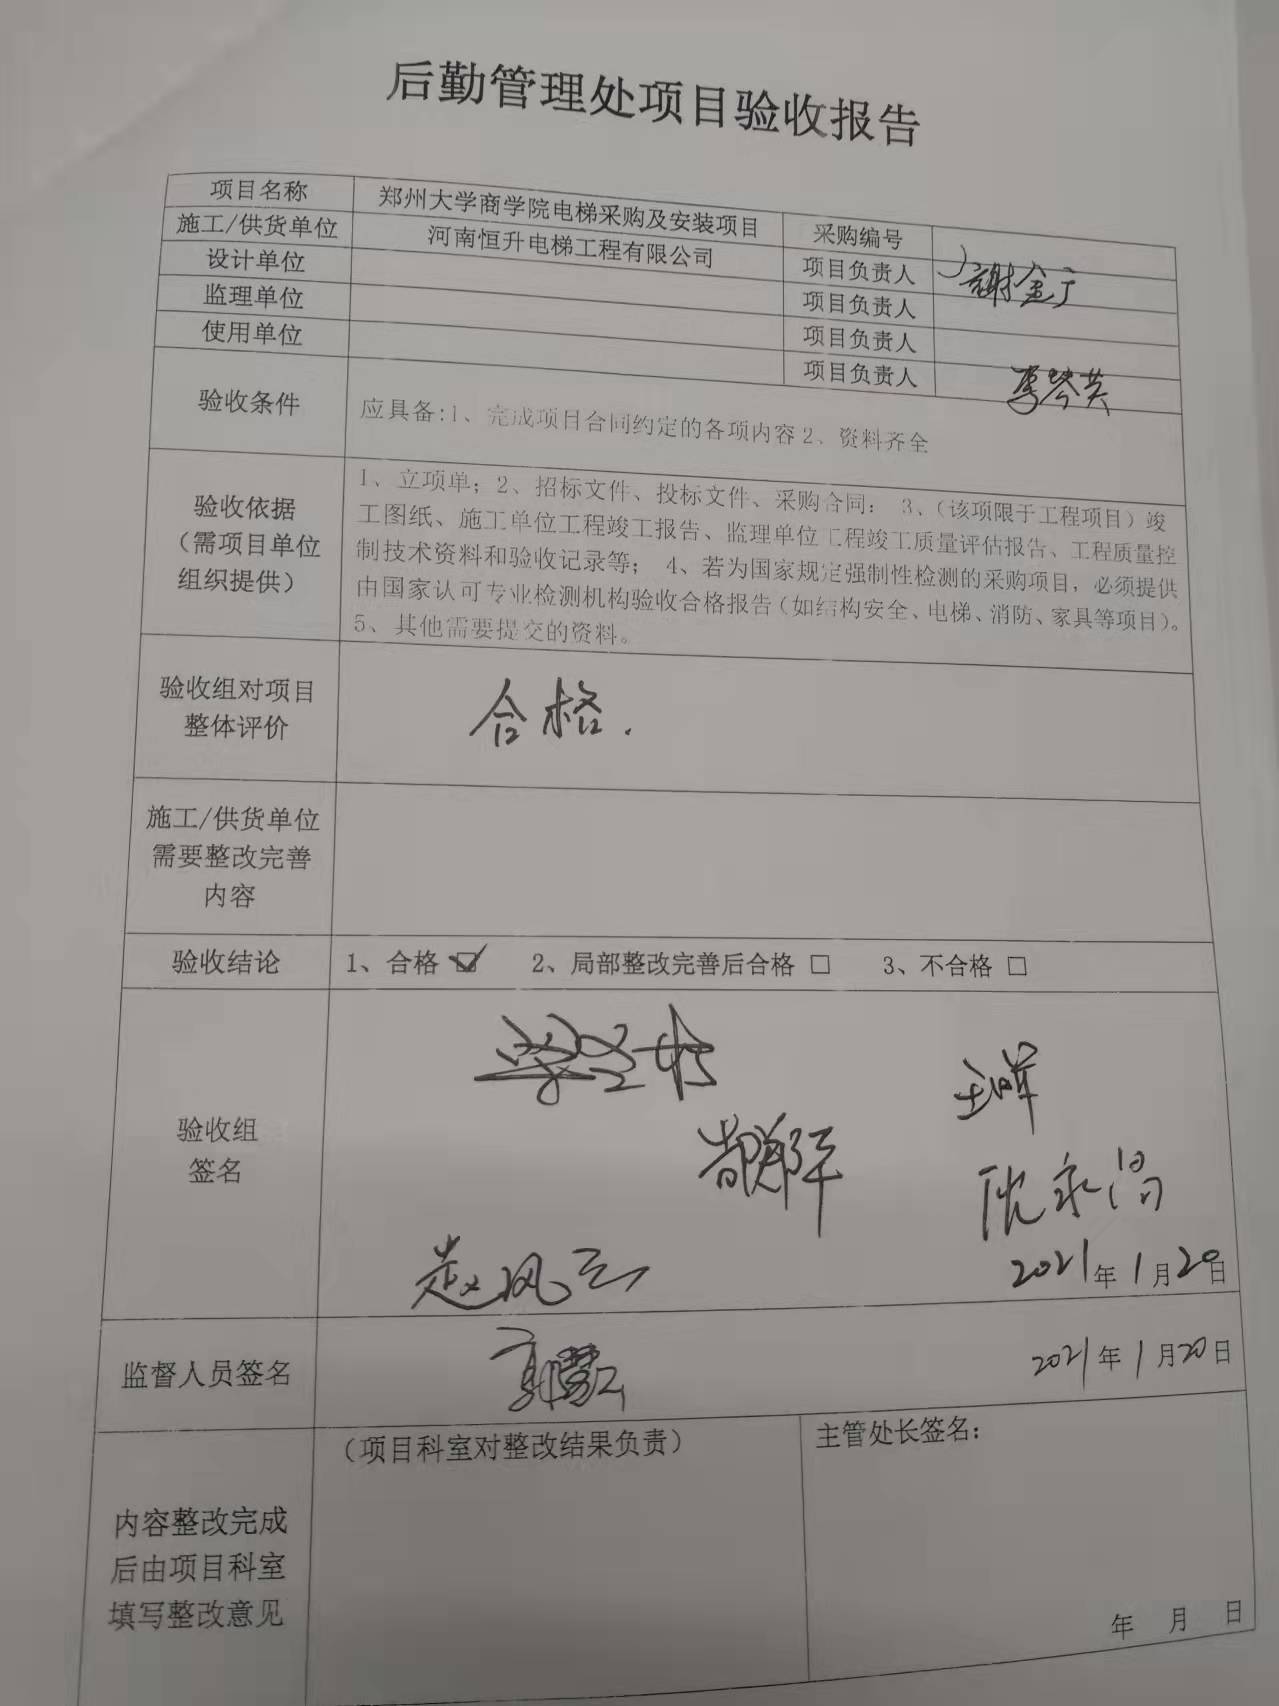 后勤管理处项目验收报告
项目名称 郑州大学商学院电梯采购及安装项目 采购编号
施工/供货单位 河南恒升电梯工程有限公司 项目负责人 谢金广
设计单位 项目负责人
监理单位 项目负责人
使用单位 项目负责人 李琴英
验收条件 应具备:1、完成项目合同约定的各项内容 2、资料齐全
验收依据
（需项目单位
组织提供）
1、立项单；2、招标文件、投标文件、采购合同： 3、（该项限于工程项目）竣
工图纸、施工单位工程竣工报告、监理单位工程竣工质量评估报告、工程质量控
制技术资料和验收记录等； 4、若为国家规定强制性检测的采购项目，必须提供
由国家认可专业检测机构验收合格报告（如结构安全、电梯、消防、家具等项目）。
5、其他需要提交的资料。
验收组对项目
整体评价
合格.
施工/供货单位
需要整改完善
内容
验收结论 1、合格 ☑ 2、局部整改完善后合格 □ 3、不合格 □
验收组
签名
沈永昌
赵凤云
2021年1月20日
监督人员签名 2021年1月20日
内容整改完成
后由项目科室
填写整改意见
（项目科室对整改结果负责）
主管处长签名：
年 月 日